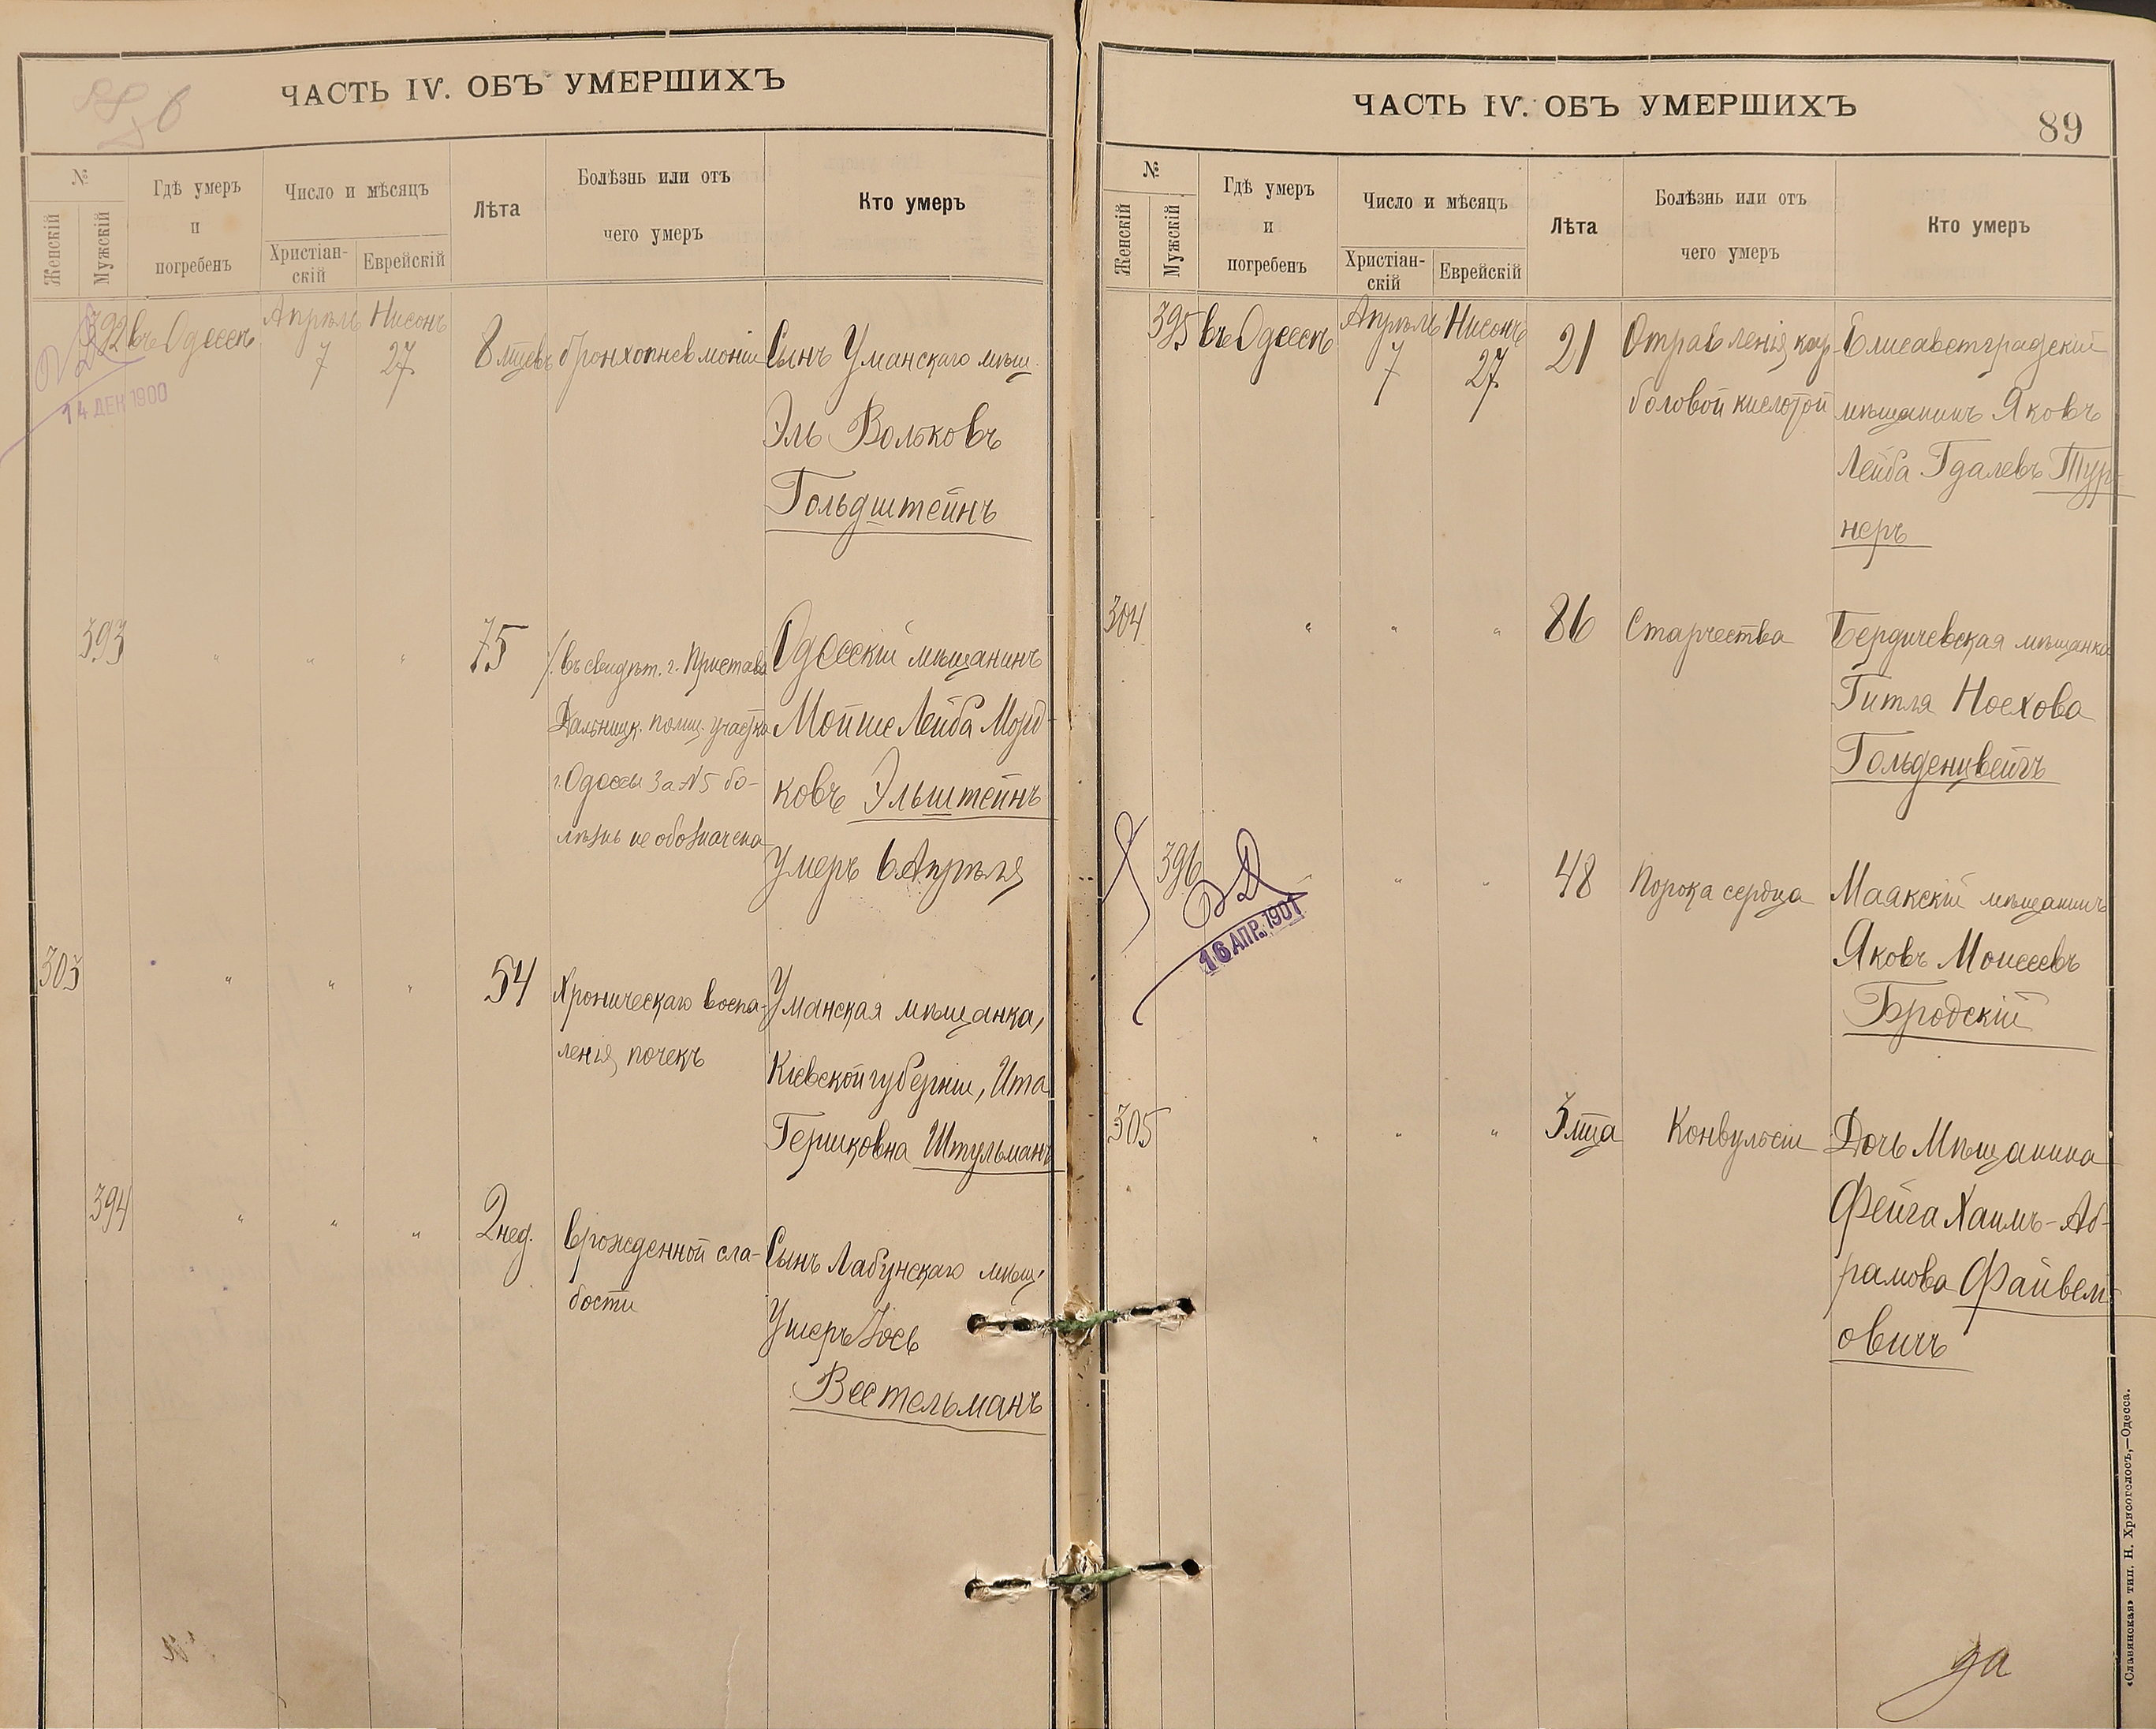 ЧАСТЬ IV. ОБЪ УМЕРШИХЪ
№
Женскій
Мужскій
Гдѣ умеръ
и
погребенъ
Число и мѣсяцъ
Христіан-
скій
Еврейскій
Лѣта
Болѣзнь или отъ
чего умеръ
Кто умеръ
392 въ Одессѣ Апрѣль 7 Нисонъ 27 8 мцевъ бронхопневмоніи Сынъ Уманскаго мѣщ.
Эль Вольковъ
Гольдштейнъ
14 ДЕК 1900
393 " " " 75 Одесскій мѣщанинъ
въ свидѣт. г. Пристава
Дальницк. полиц. участка Мойше Лейба Морд-
г. Одессы за №5 бо- ковъ Эльштейнъ
лѣзнь не обозначена умеръ 6 Апрѣля
303 " " " 54 Хроническаго воспа- Уманская мѣщанка,
ленія почекъ Кіевской губерніи, Ита
Гершковна Штульманъ
394 " " " 2 нед. врожденной сла- Сынъ Лабунскаго мѣщ.
бости Ушеръ Іось
Вестельманъ
ЧАСТЬ IV. ОБЪ УМЕРШИХЪ
89
№
Женскій
Мужскій
Гдѣ умеръ
и
погребенъ
Число и мѣсяцъ
Христіан-
скій
Еврейскій
Лѣта
Болѣзнь или отъ
чего умеръ
Кто умеръ
395 въ Одессѣ Апрѣль 7 Нисонъ 27 21 Отравленія кар- Елисаветградскій
боловой кислотой мѣщанинъ Яковъ
Лейба Гдалевъ Тур-
неръ
304 " " " 86 Старчества Бердичевская мѣщанка
Гитля Ноехова
Гольденцвейгъ
396 " " " 48 Порока сердца Маякскій мѣщанинъ
Яковъ Моисеевъ
Бродскій
16 АПР. 1901
305 " " " 3 мца Конвульсіи Дочь Мѣщанина
Фейга Хаимъ-Аб-
рамова Файвел-
овичъ
да
«Славянская» тип. Н. Хрисогелосъ,—Одесса.